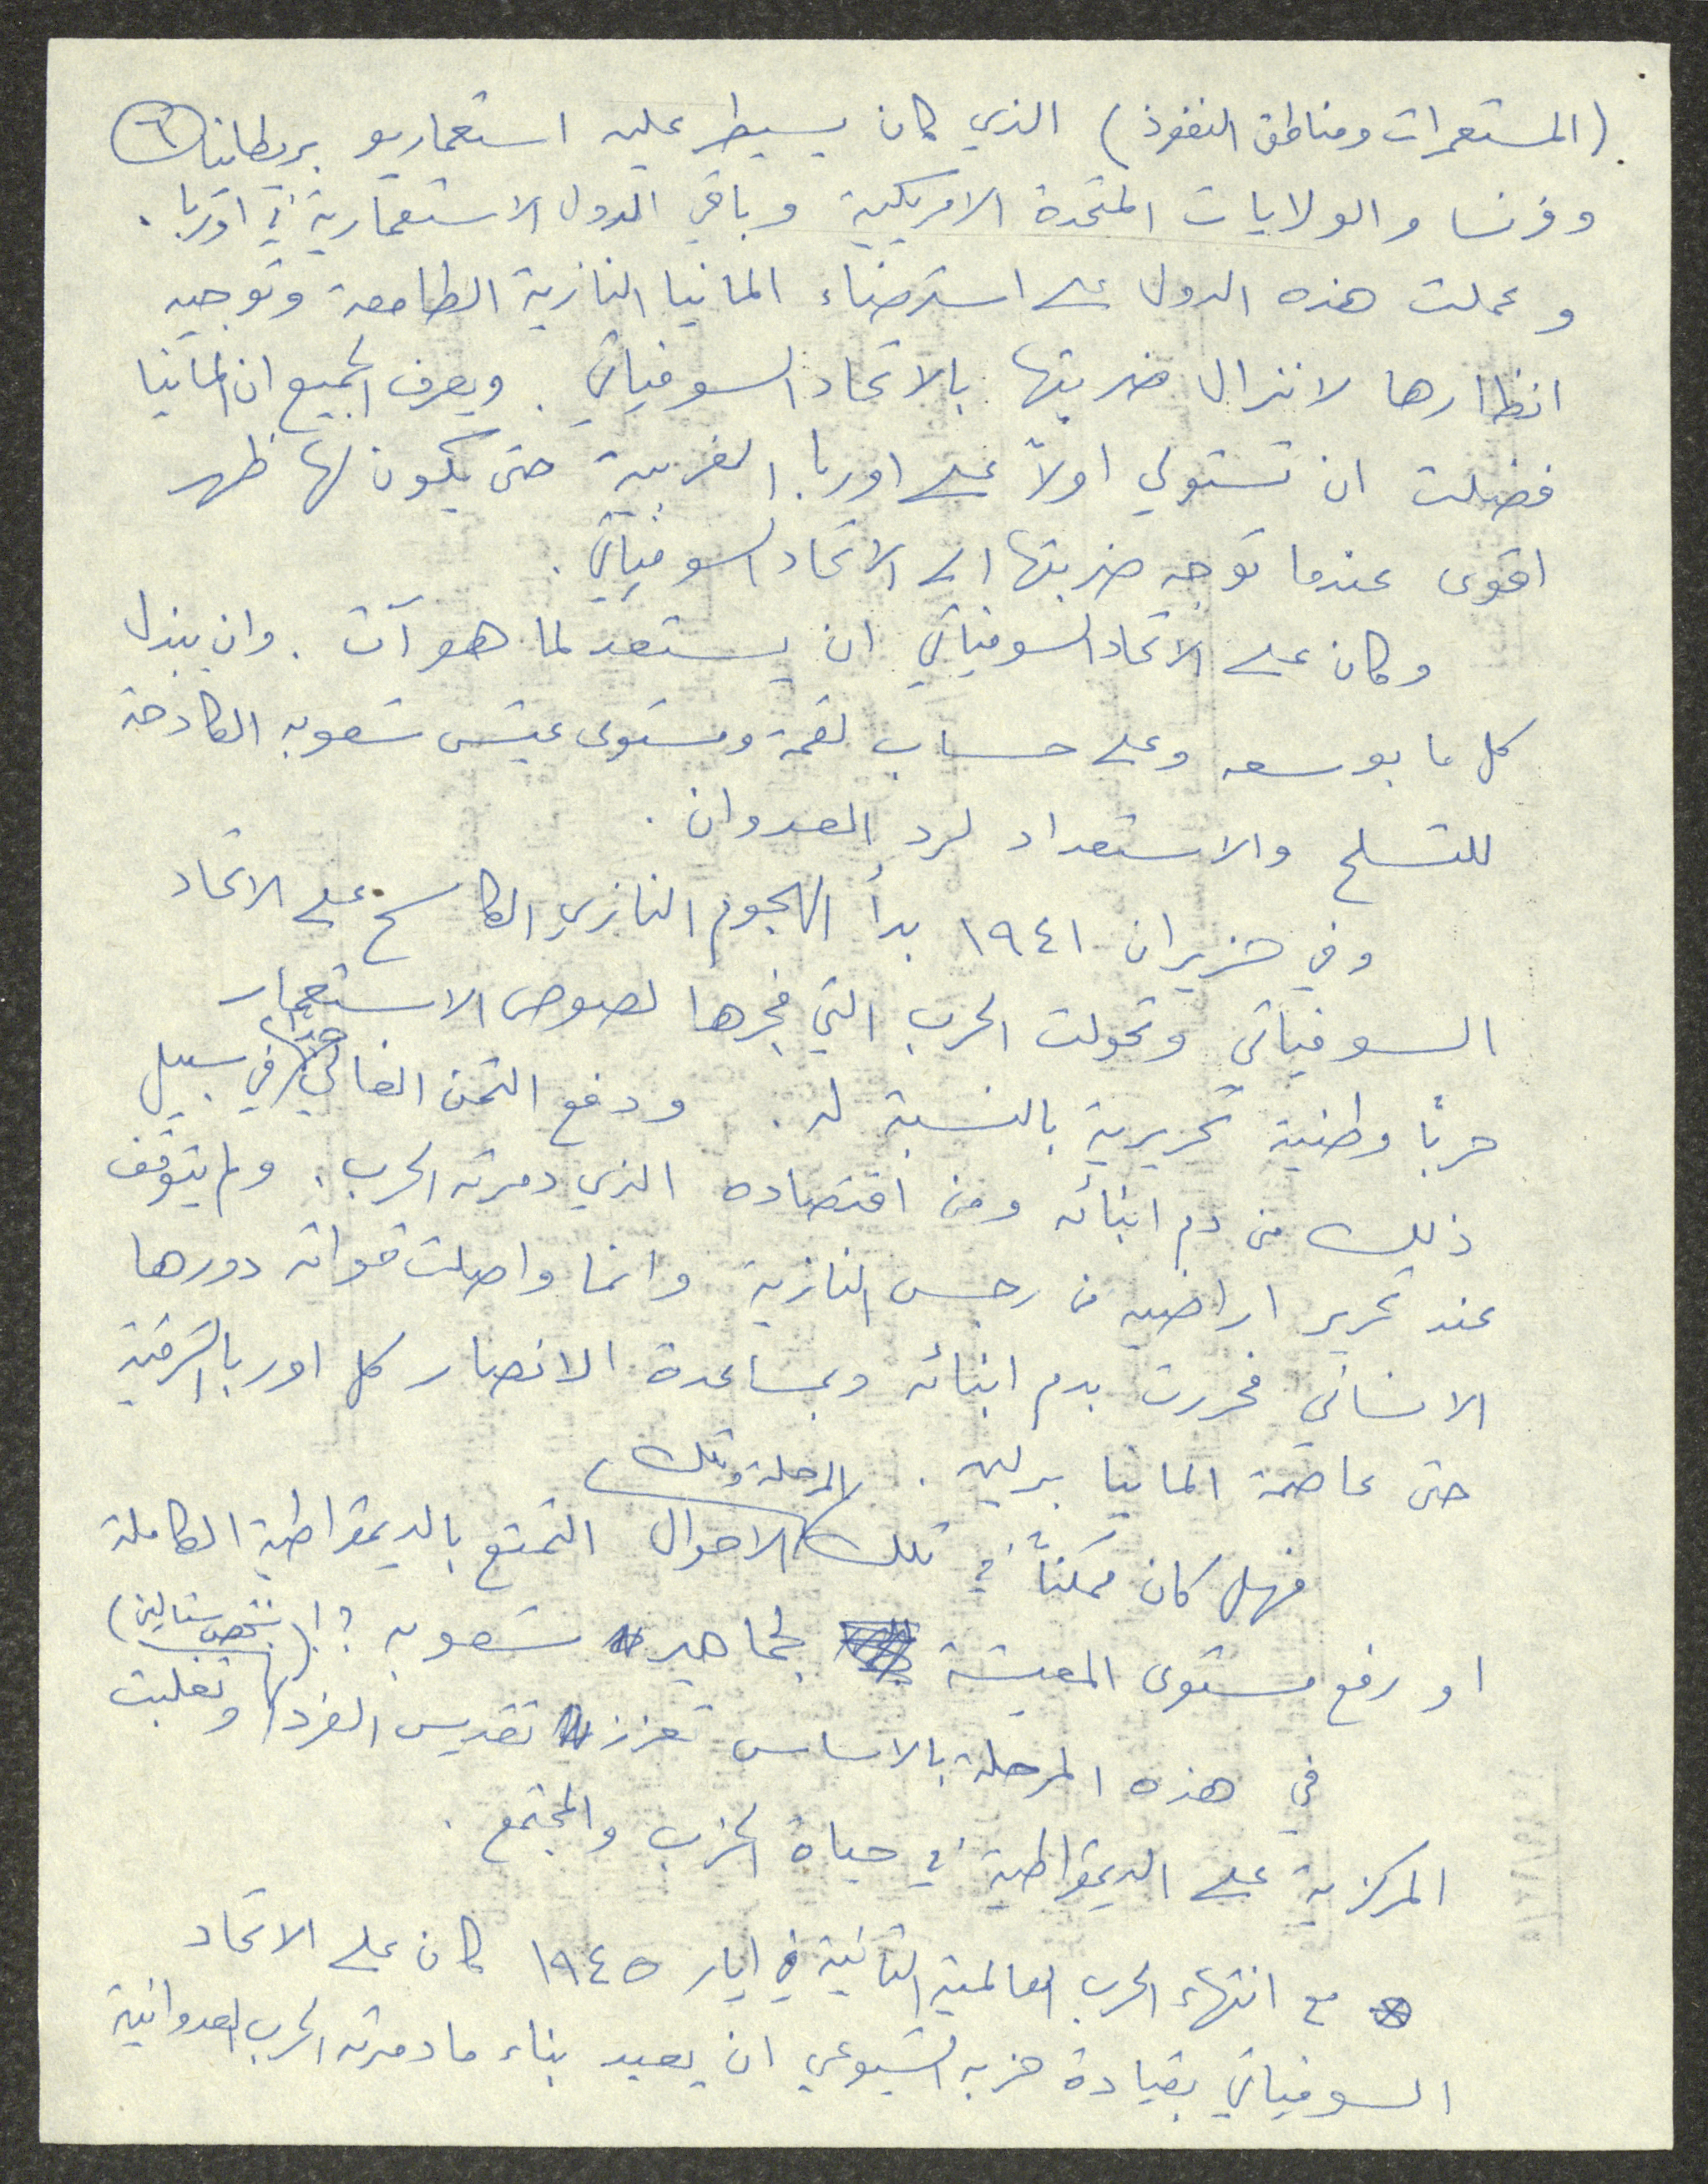 (المستعمرات ومناطق النفوذ) الذي كان يسيطر عليه استعماريو بريطانيا ٦
وفرنسا والولايات المتحدة الامريكية وباقي الدول الاستعمارية في اوربا.
وعملت هذه الدول على استرضاء المانيا النازية الطامعة وتوجيه
انظارها لانزال ضربتها بالاتحاد السوفياتي. ويعرف الجميع ان المانيا
فضلت ان تستولي اولاً على اوربا الغربية حتى يكون لها ظهر
اقوى عندما توجه ضربتها الى الاتحاد السوفياتي.
وكان على الاتحاد السوفياتي ان يستعد لما هو آت. وان يبذل
كل ما بوسعه وعلى حساب لقمة ومستوى عيش شعوبه الكادحة
للتسلح والاستعداد لرد العدوان.
وفي حزيران ١٩٤١ بدأ الهجوم النازي الكاسح على الاتحاد
السوفياتي وتحولت الحرب التي فجرها لصوص الاستعمار
حرباً وطنية تحريرية بالنسبة له. ودفع الثمن الغالي جداً في سبيل
ذلك من دم ابنائه ومن اقتصاده الذي دمرته الحرب. ولم يتوقف
عند تحرير اراضيه من رجس النازية وانما واصلت قواته دورها
الانساني فحررت بدم ابنائه وبمساعدة الانصار كل اوربا الشرقية
حتى عاصمة المانيا برلين.
فهل كان ممكناً في تلك المرحلة وتلك الاحوال التمتع بالديمقراطية الكاملة
او رفع مستوى المعيشة لجماهير شعوبه؟!
في هذه المرحلة بالاساس تعزز تقديس الفرد (بشخص ستالين) وتغلبت
المركزية على الديمقراطية في حياة الحزب والمجتمع.
مع انتهاء الحرب العالمية الثانية في ايار ١٩٤٥ كان على الاتحاد
السوفياتي بقيادة حزبه الشيوعي ان يعيد بناء ما دمرته الحرب العدوانية